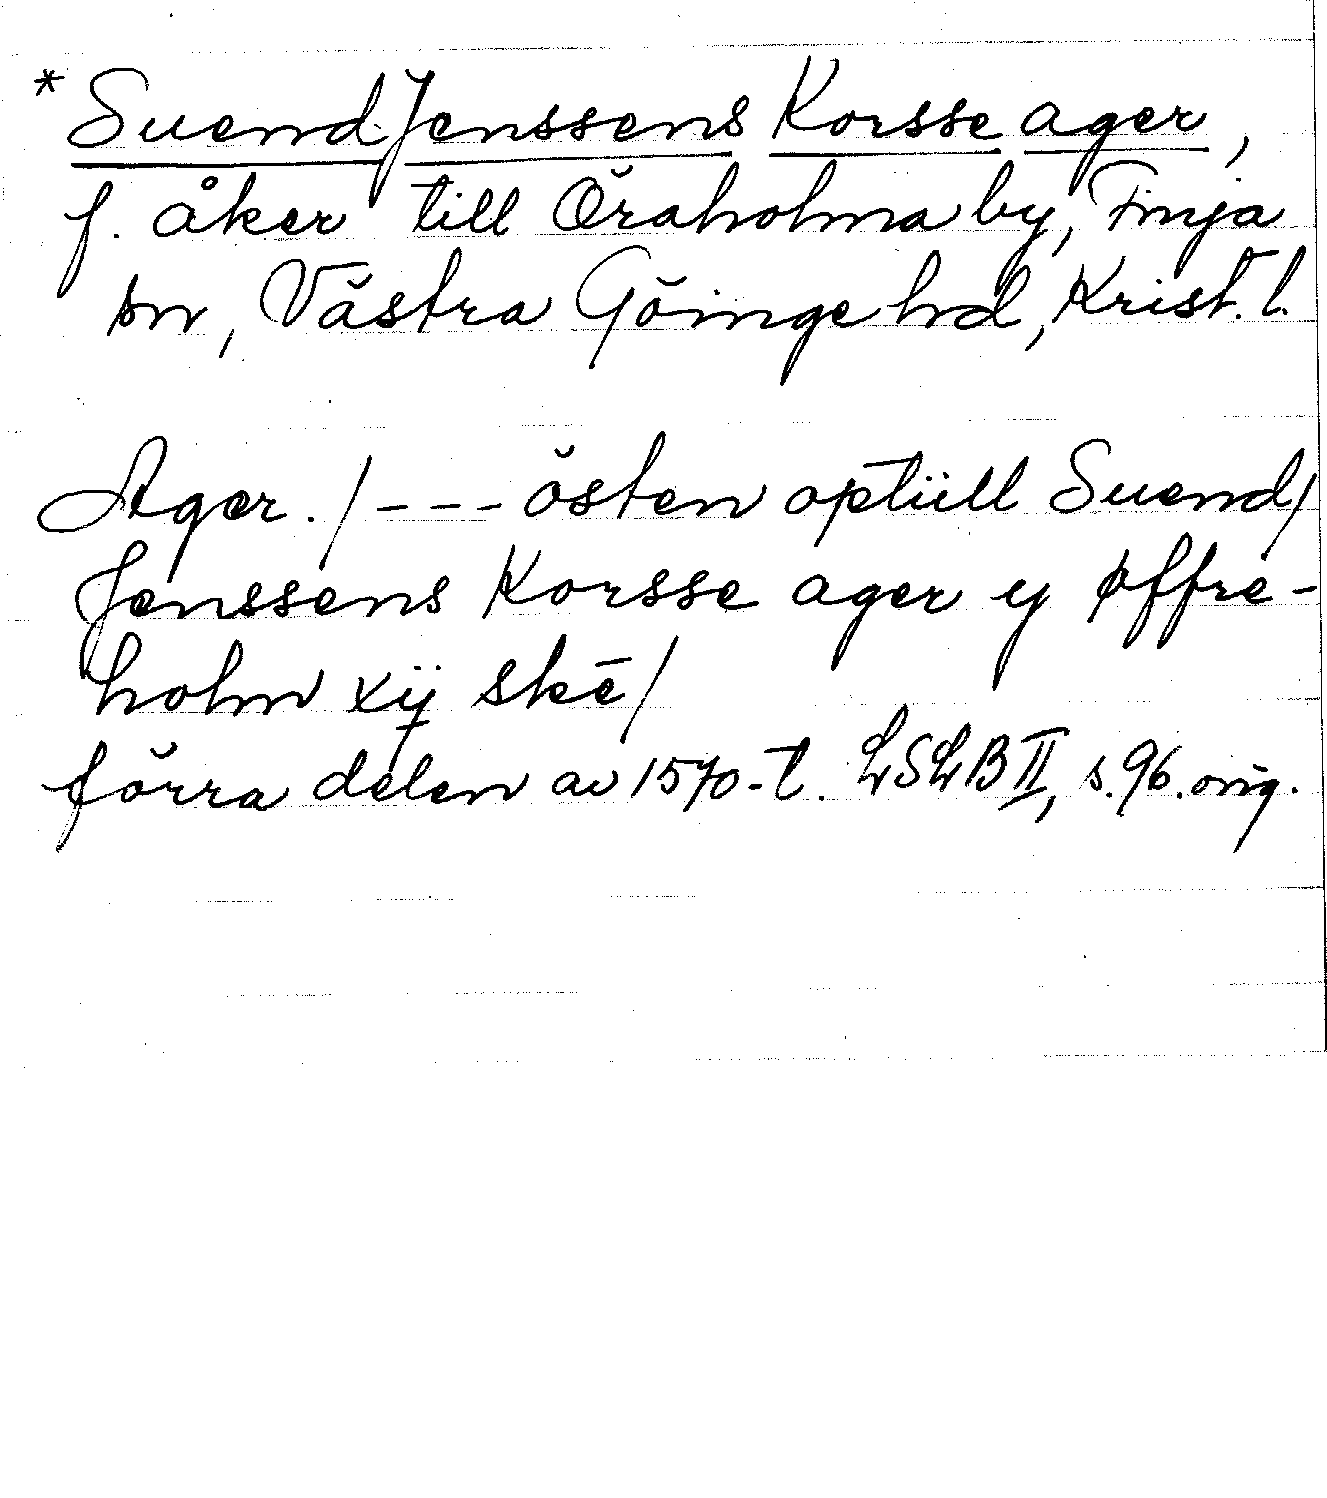 * Suend Jenssens Korsse ager,
f. åker till Öraholma by, Finja
sn, Västra Göinge hd, Krist. l.
Ager. / - - - östen optiill Suend/
Jenssens Korsse ager y øffre-
holm xij skē/
förra delen av 1570-t. LSLB II, s. 96. orig.